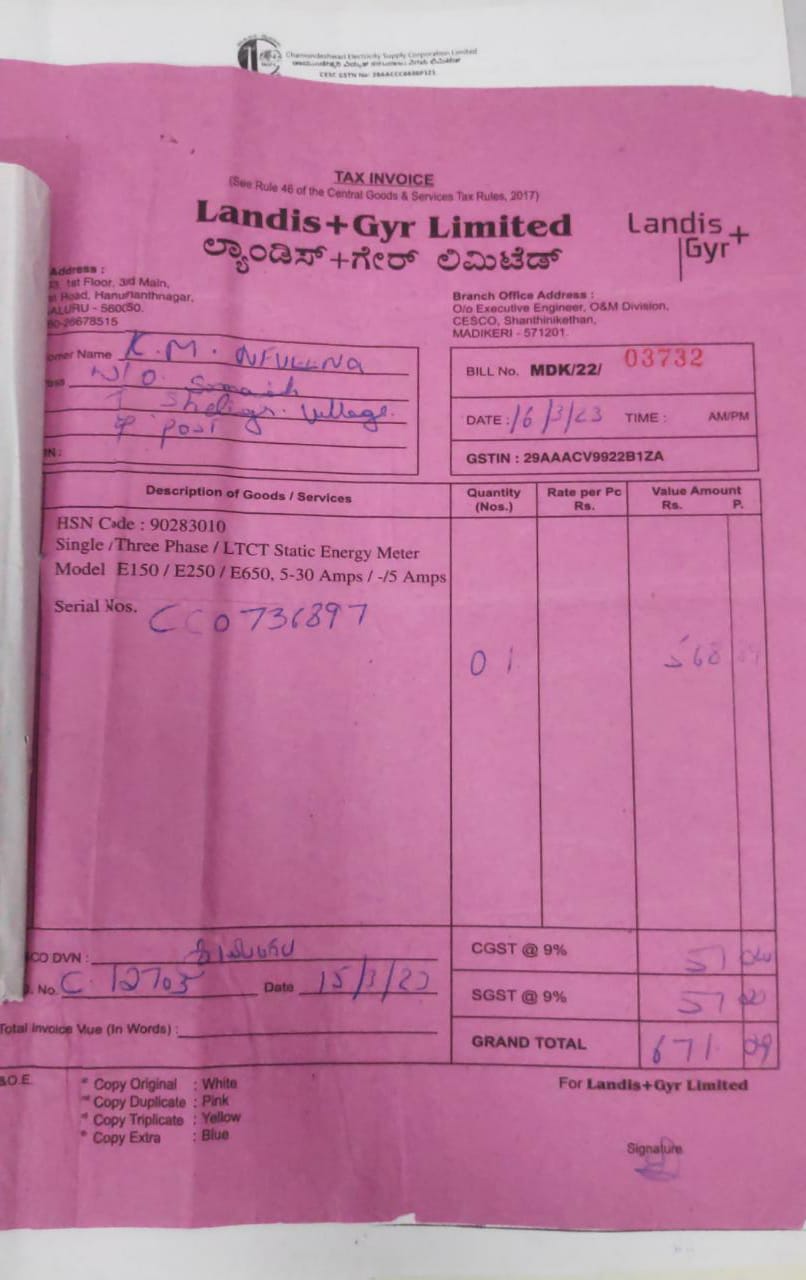 Chamundeshwari Electricity Supply Corporation Limited
TAX INVOICE
(See Rule 46 of the Central Goods & Services Tax Rules, 2017)
Landis+Gyr Limited
ಲ್ಯಾಂಡಿಸ್+ಗೇರ್ ಲಿಮಿಟೆಡ್
Landis+
Gyr+
Address :
1st Floor, 3rd Main,
Road, Hanumanthnagar,
ALURU - 560050.
26678515
Branch Office Address :
O/o Executive Engineer, O&M Division,
CESCO, Shanthinikethan,
MADIKERI - 571201.
omer Name K.M.
Village
post
IN :
BILL No. MDK/22/ 03732
DATE : 16/3/23 TIME : AM/PM
GSTIN : 29AAACV9922B1ZA
Description of Goods / Services Quantity (Nos.) Rate per Pc Rs. Value Amount Rs. P.
HSN Code : 90283010
Single /Three Phase / LTCT Static Energy Meter
Model E150 / E250 / E650, 5-30 Amps / -/5 Amps
Serial Nos. CC0736897
01 568
CO DVN :
. No. C 12705 Date 15/3/23
CGST @ 9% 51
SGST @ 9% 51
Total Invoice Vlue (In Words) :
GRAND TOTAL 671 09
&O.E.
* Copy Original : White
* Copy Duplicate : Pink
* Copy Triplicate : Yellow
* Copy Extra : Blue
For Landis+Gyr Limited
Signature